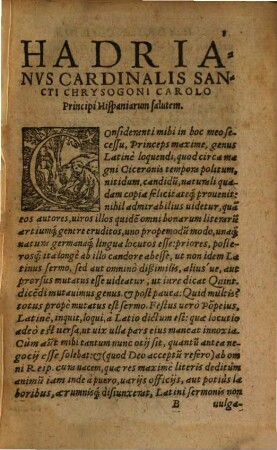 HADRIA-
NVS CARDINALIS SAN-
CTI CHRYSOGONI CAROLO
Principi Hispaniarum salutem.
COnsidenti mihi in hoc meo se-
cessu, Princeps maxime, genus
Latinè loquendi, quod circa ma
gni Ciceronis tempora politum,
nitidum, candidũ, naturali qua-
dam copia felicitateq́ prouenit:
nihil admirabilius uidetur, quàm
eos autores, uiros illos quidẽ omni bonarum literarũ
artiumq́ genere eruditos, uno propemodũ modo, unaq́
natura germanaq́ lingua locutos esse: priores, poste-
rosq́ ita longè ab illo candore abesse, ut non idem La
tinus sermo, sed aut omnino dissimilis, alius'ue, aut
prorsus mutatus esse uideatur, ut iure dicat Quint.
dicẽdi mutauimus genus. & post pauca: Quid multis?
totus propè mutatus est sermo. Festus uerò Põpeius,
Latinè, inquit, loqui, à Latio dictum est: quæ locutio
adeò est uersa, ut uix ulla pars eius maneat innoxia.
Cum aũt mihi tantum nunc ocij sit, quantũ antea ne
gocij esse solebat: & (quod Deo acceptũ refero) ab om
ni Reip. cura uacem, quæ res maximè literis deditum
animũ iam inde à puero, uarijs officijs, aut potiùs la
boribus, ærumnisq́ disiunxerat, Latini sermonis non
B uulga-